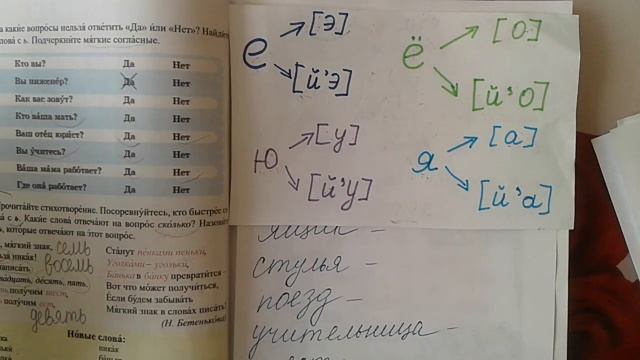 а какие вопросы нельзя ответить «Да» и́ли «Нет»? Найдите
слова с ь. Подчеркните мя́гкие согла́сные.
Кто вы? Да Нет
Вы инжене́р? Да Нет
Как вас зову́т? Да Нет
Кто ва́ша мать? Да Нет
Ваш оте́ц юри́ст? Да Нет
Вы у́читесь? Да Нет
Ва́ша ма́ма рабо́тает? Да Нет
Где она́ рабо́тает? Да Нет
Прочита́йте стихотворе́ние. Посоревну́йтесь, кто быстре́е
с ь. Каки́е слова́ отвеча́ют на вопро́с ско́лько?
кото́рые отвеча́ют на э́тот вопро́с.
мя́гкий знак,
семь
восемь
де́сять, пять.
полу́чим шест,
полу́чим ест,
девять
Ста́нут пе́нками пеньки́,
Уголка́ми – угольки́,
Ба́нька в ба́нку преврати́тся –
Вот что мо́жет получи́ться,
Е́сли бу́дем забыва́ть
Мя́гкий знак в слова́х писа́ть!
(Н. Бетенько́ва)
Но́вые слова́:
Е [э]
[й'э]
Ё [о]
[й'о]
Ю [у]
[й'у]
Я [а]
[й'а]
ящик –
стулья –
поезд –
учительница –